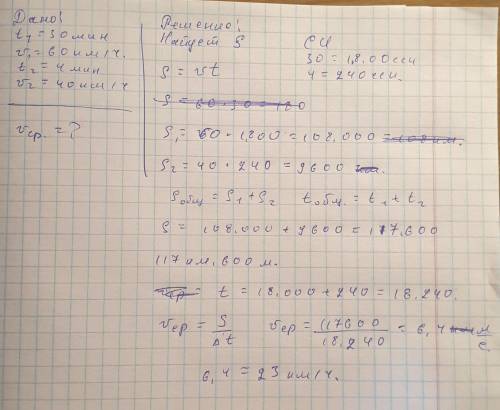 Дано!
t₁ = 30 мин
v₁ = 60 км/ч.
t₂ = 4 мин
v₂ = 40 км/ч
vср. = ?
Решение!
Найдем S
СИ
30 = 1,8.00сек
4 = 240сек.
S = vt
S = 60 · 30 = 180
S₁ = 60 · 1800 = 108,000 = 108 км.
S₂ = 40 · 240 = 9600
Sобщ = S₁ + S₂ tобщ. = t₁ + t₂
S = 108,000 + 9600 = 117,600
117 км, 600 м.
vср = t = 18,000 + 240 = 18,240.
vср = S/Δt vср = 117600/18,240 = 6,4 м/с
6,4 = 23 км/ч.